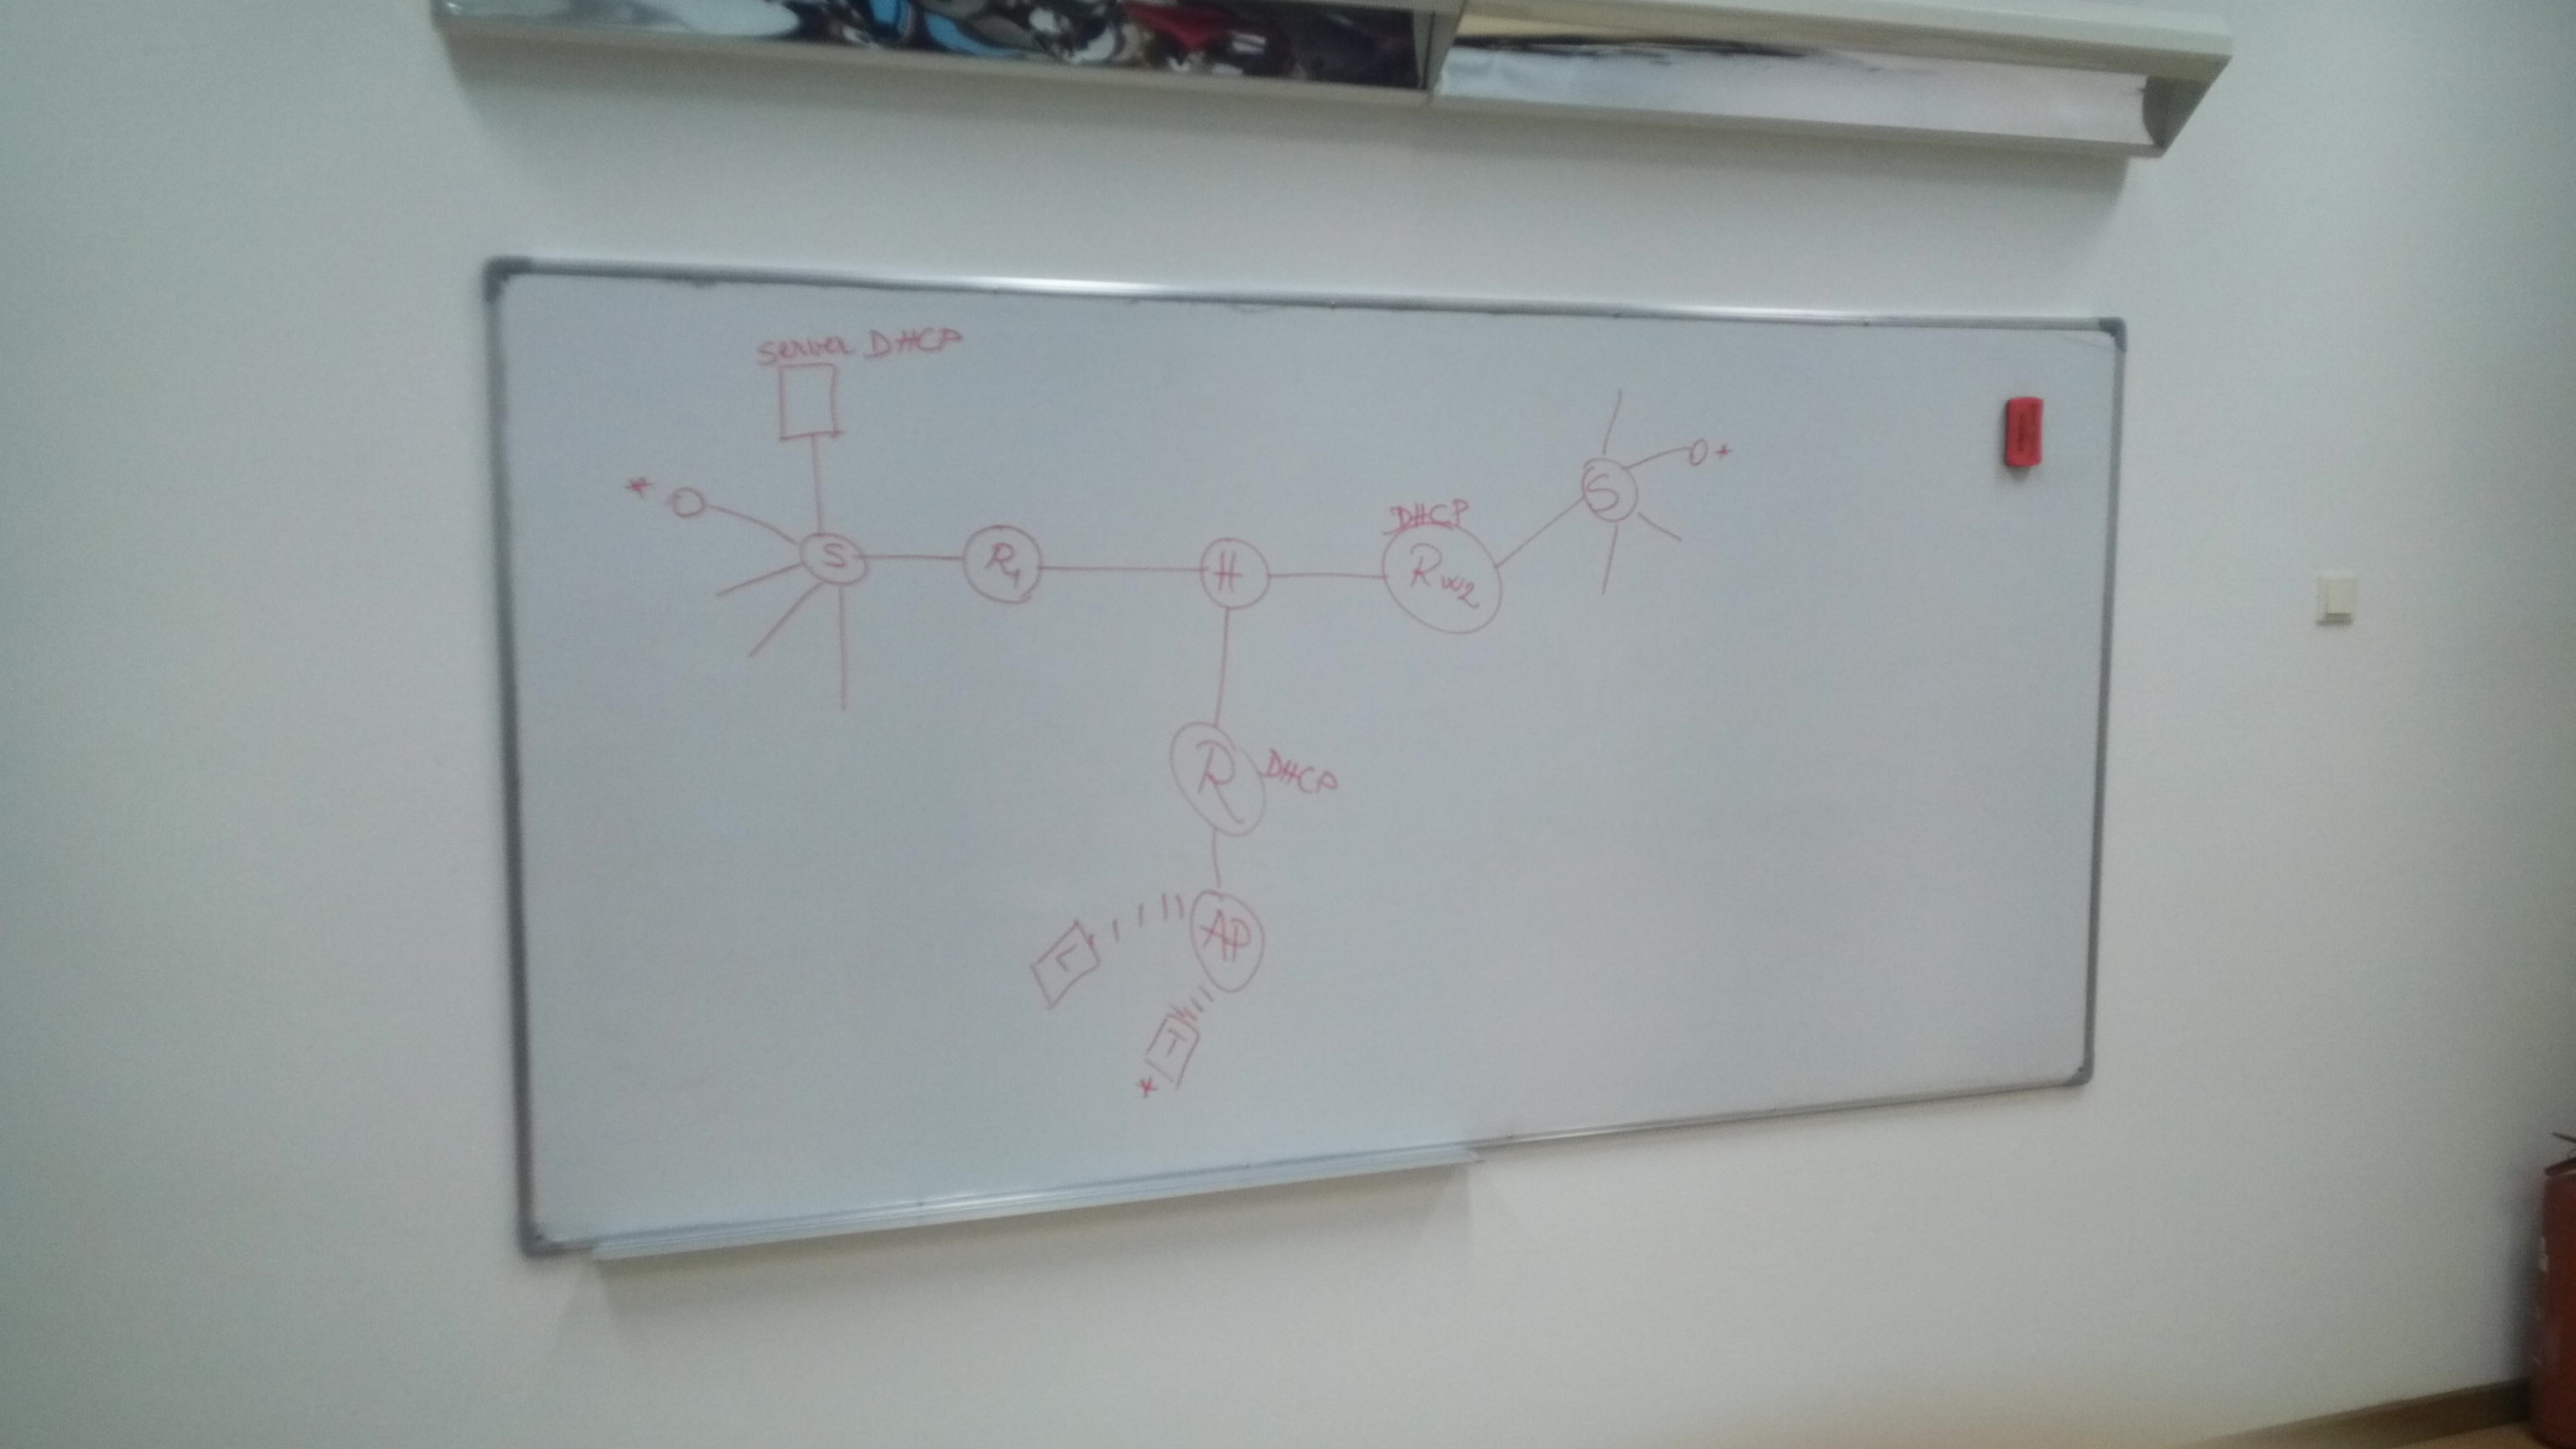 server DHCP
* O
O *
S
R1
H
DHCP
RW2
S
R
DHCP
AP
L
T
*